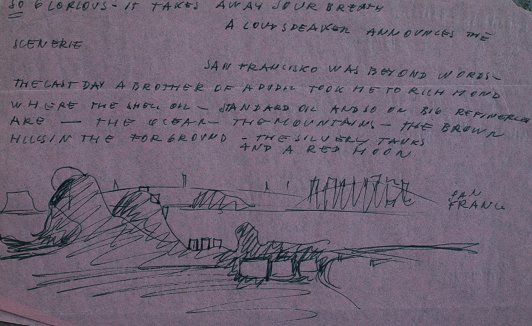 SO GLORIOUS - IT TAKES AWAY YOUR BREATH
A LOUDSPEAKER ANNOUNCES THE
SCENERIE
SAN FRANCISKO WAS BEYOND WORDS -
THE LAST DAY A BROTHER OF A PUPIL TOOK ME TO RICHMOND
WHERE THE SHELL OIL - STANDARD OIL AND SO ON BIG REFINERIES
ARE - THE OCEAN - THE MOUNTAINS - THE BROWN
HILLS IN THE FORGROUND - THE SILVERY TANKS
AND A RED MOON
SAN
FRANC